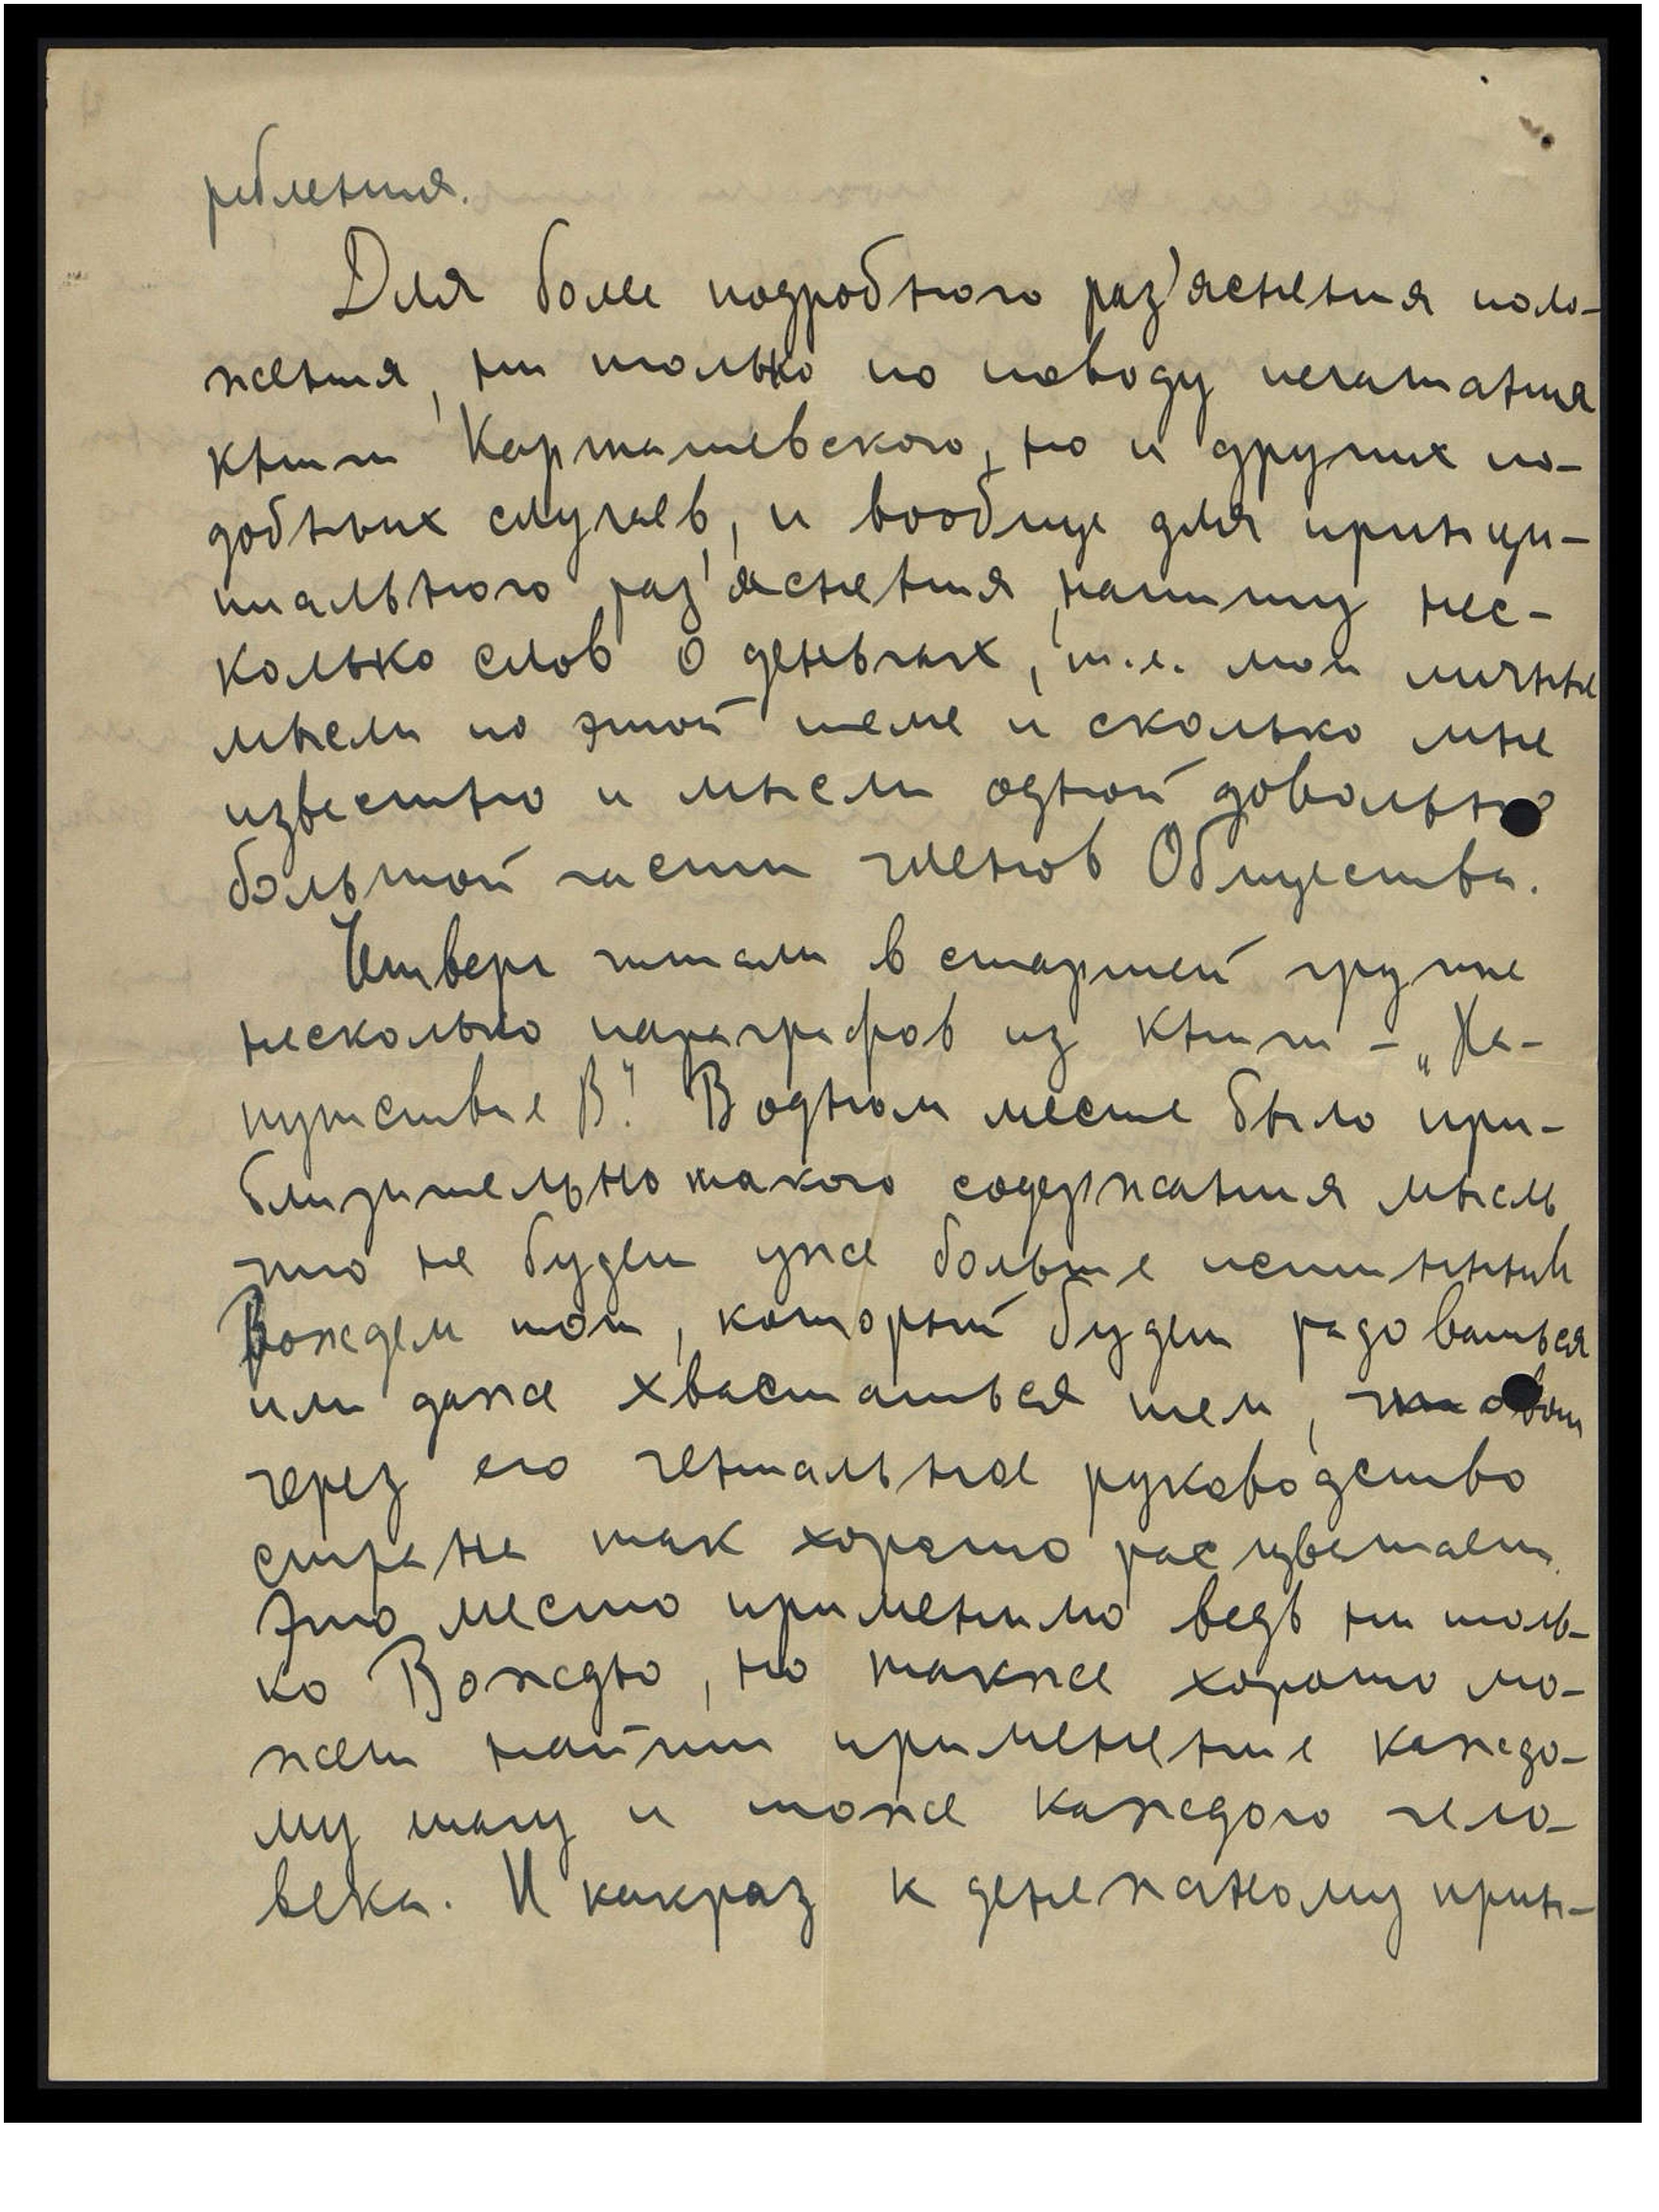 ребления.
Для более подробного раз'яснения поло-
жения, ни только по поводу печатания
книги Карташевского, но и других по-
добных случаев, и вообще для принци-
пиального раз'яснения, напишу нес-
колько слов о деньгах, т.е. мои личные
мысли по этой теме и сколько мне
известно и мысли одной довольно
большой части членов Общества.
Четверг читали в старшей группе
несколько параграфов из книги - „На-
путствие В." В одном месте было при-
близительно такого содержания мысль
что не будет уже больше истинный
Вождем тот, который будет радоваться
или даже хвастаться тем, что вот
через его гениальное руководство
страна так хорошо расцветает.
Это место применимо ведь ни толь-
ко Вождю, но также хорошо мо-
жет найти применение каждо-
му шагу и тоже каждого чело-
века. И какраз к денежному прин-